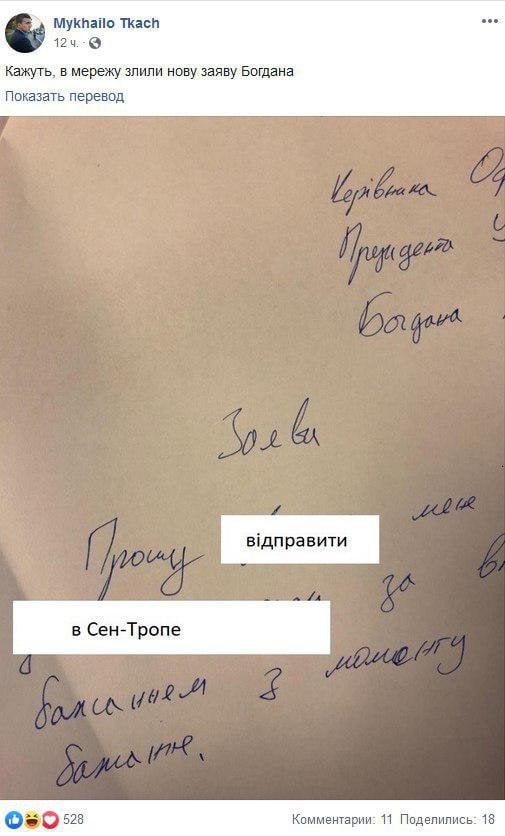 Mykhailo Tkach
12 ч.
Кажуть, в мережу злили нову заяву Богдана
Показать перевод
Керівника Оф
Президента У
Богдана
Заява
Прошу відправити мене
за в
в Сен-Тропе
бажанням з моменту
бажання.
528
Комментарии: 11 Поделились: 18